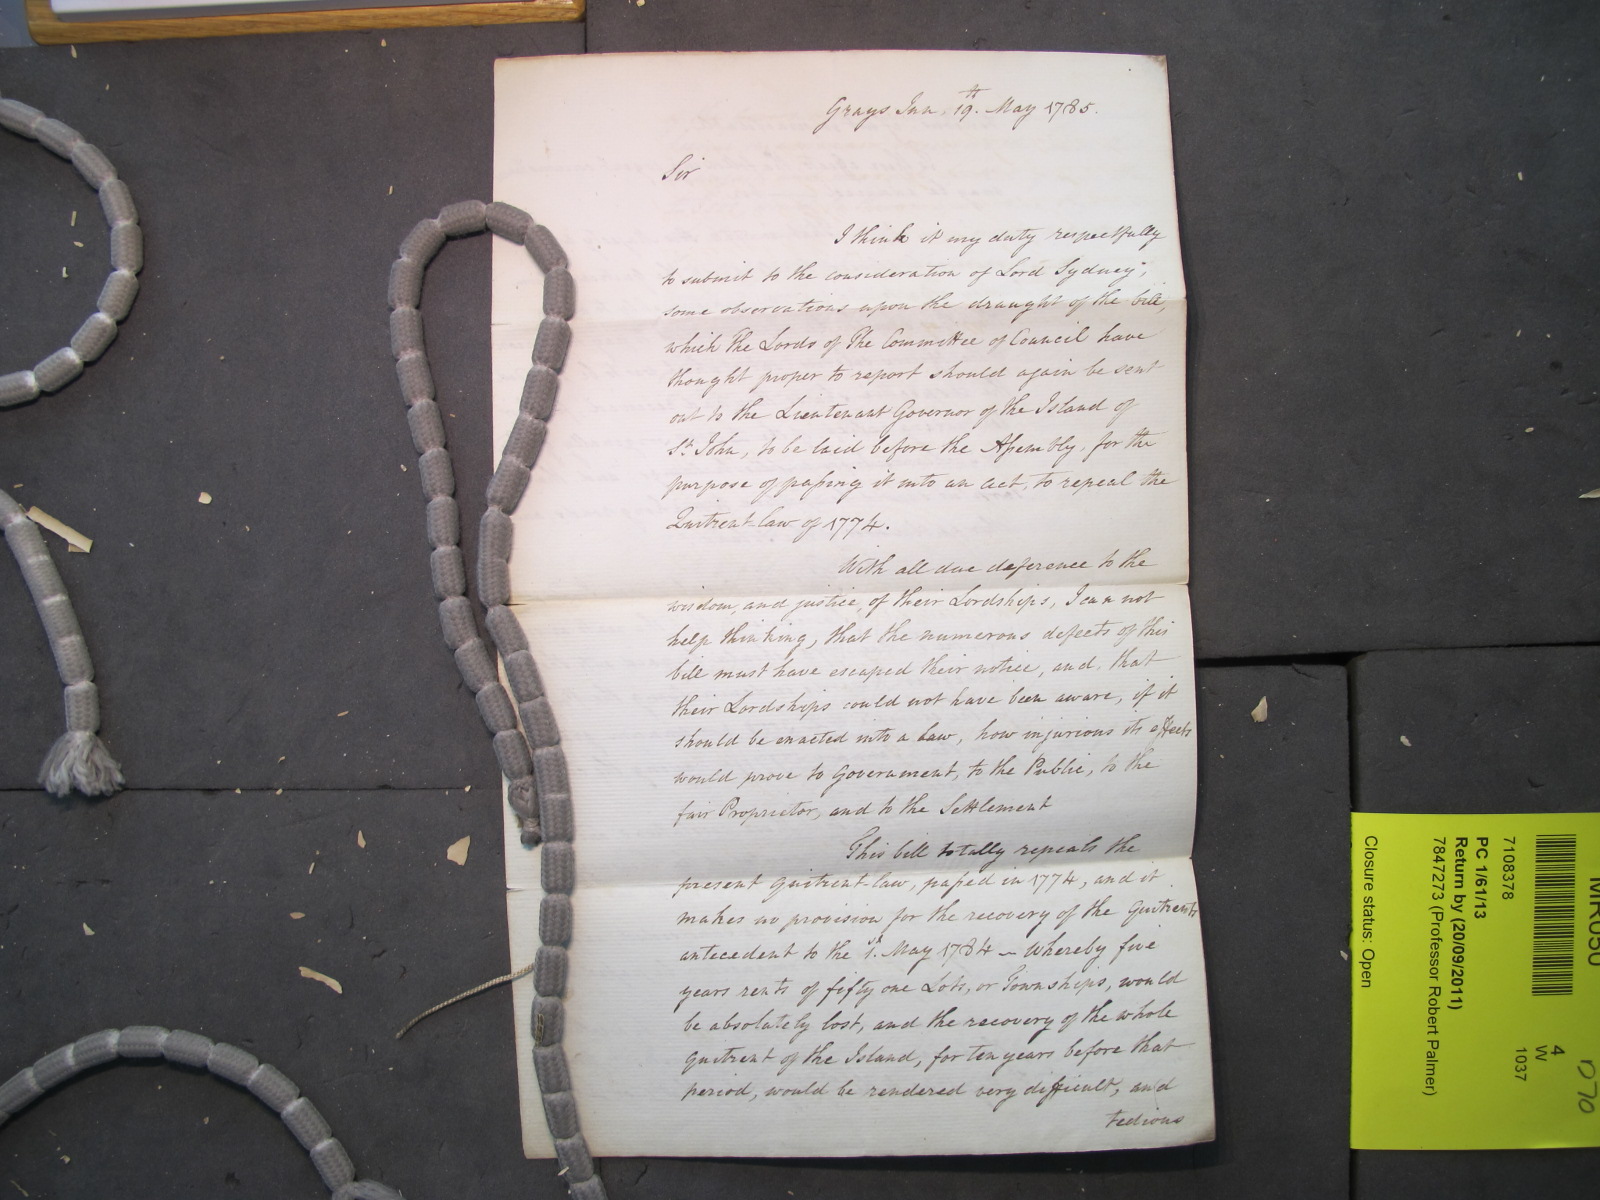 Grays Inn. 19.th May 1785.
Sir
I think it my duty respectfully
to submit to the consideration of Lord Sydney,
some observations upon the draught of the bill,
which the Lords of the Committee of Council have
thought proper to report should again be sent
out to the Lieutenant Governor of the Island of
St. John, to be laid before the Assembly, for the
purpose of passing it into an act, to repeal the
Quitrent-law of 1774.
With all due deference to the
wisdom, and justice, of their Lordships, I can not
help thinking, that the numerous defects of this
bill must have escaped their notice, and, that
their Lordships could not have been aware, if it
should be enacted into a Law, how injurious its effects
would prove to Government, to the Public, to the
fair Proprietor, and to the Settlement
This bill totally repeals the
present Quitrent-law, passed in 1774, and it
makes no provision for the recovery of the Quitrents
antecedent to the 1.st May 1784 – whereby five
years rents of fifty one Lots, or Townships, would
be absolutely lost, and the recovery of the whole
Quitrent of the Island, for ten years before that
period, would be rendered very difficult, and
tedious
MR050
7108378
PC 1/61/13
Return by (20/09/2011)
7847273 (Professor Robert Palmer)
Closure status: Open
4
W
1037
D70